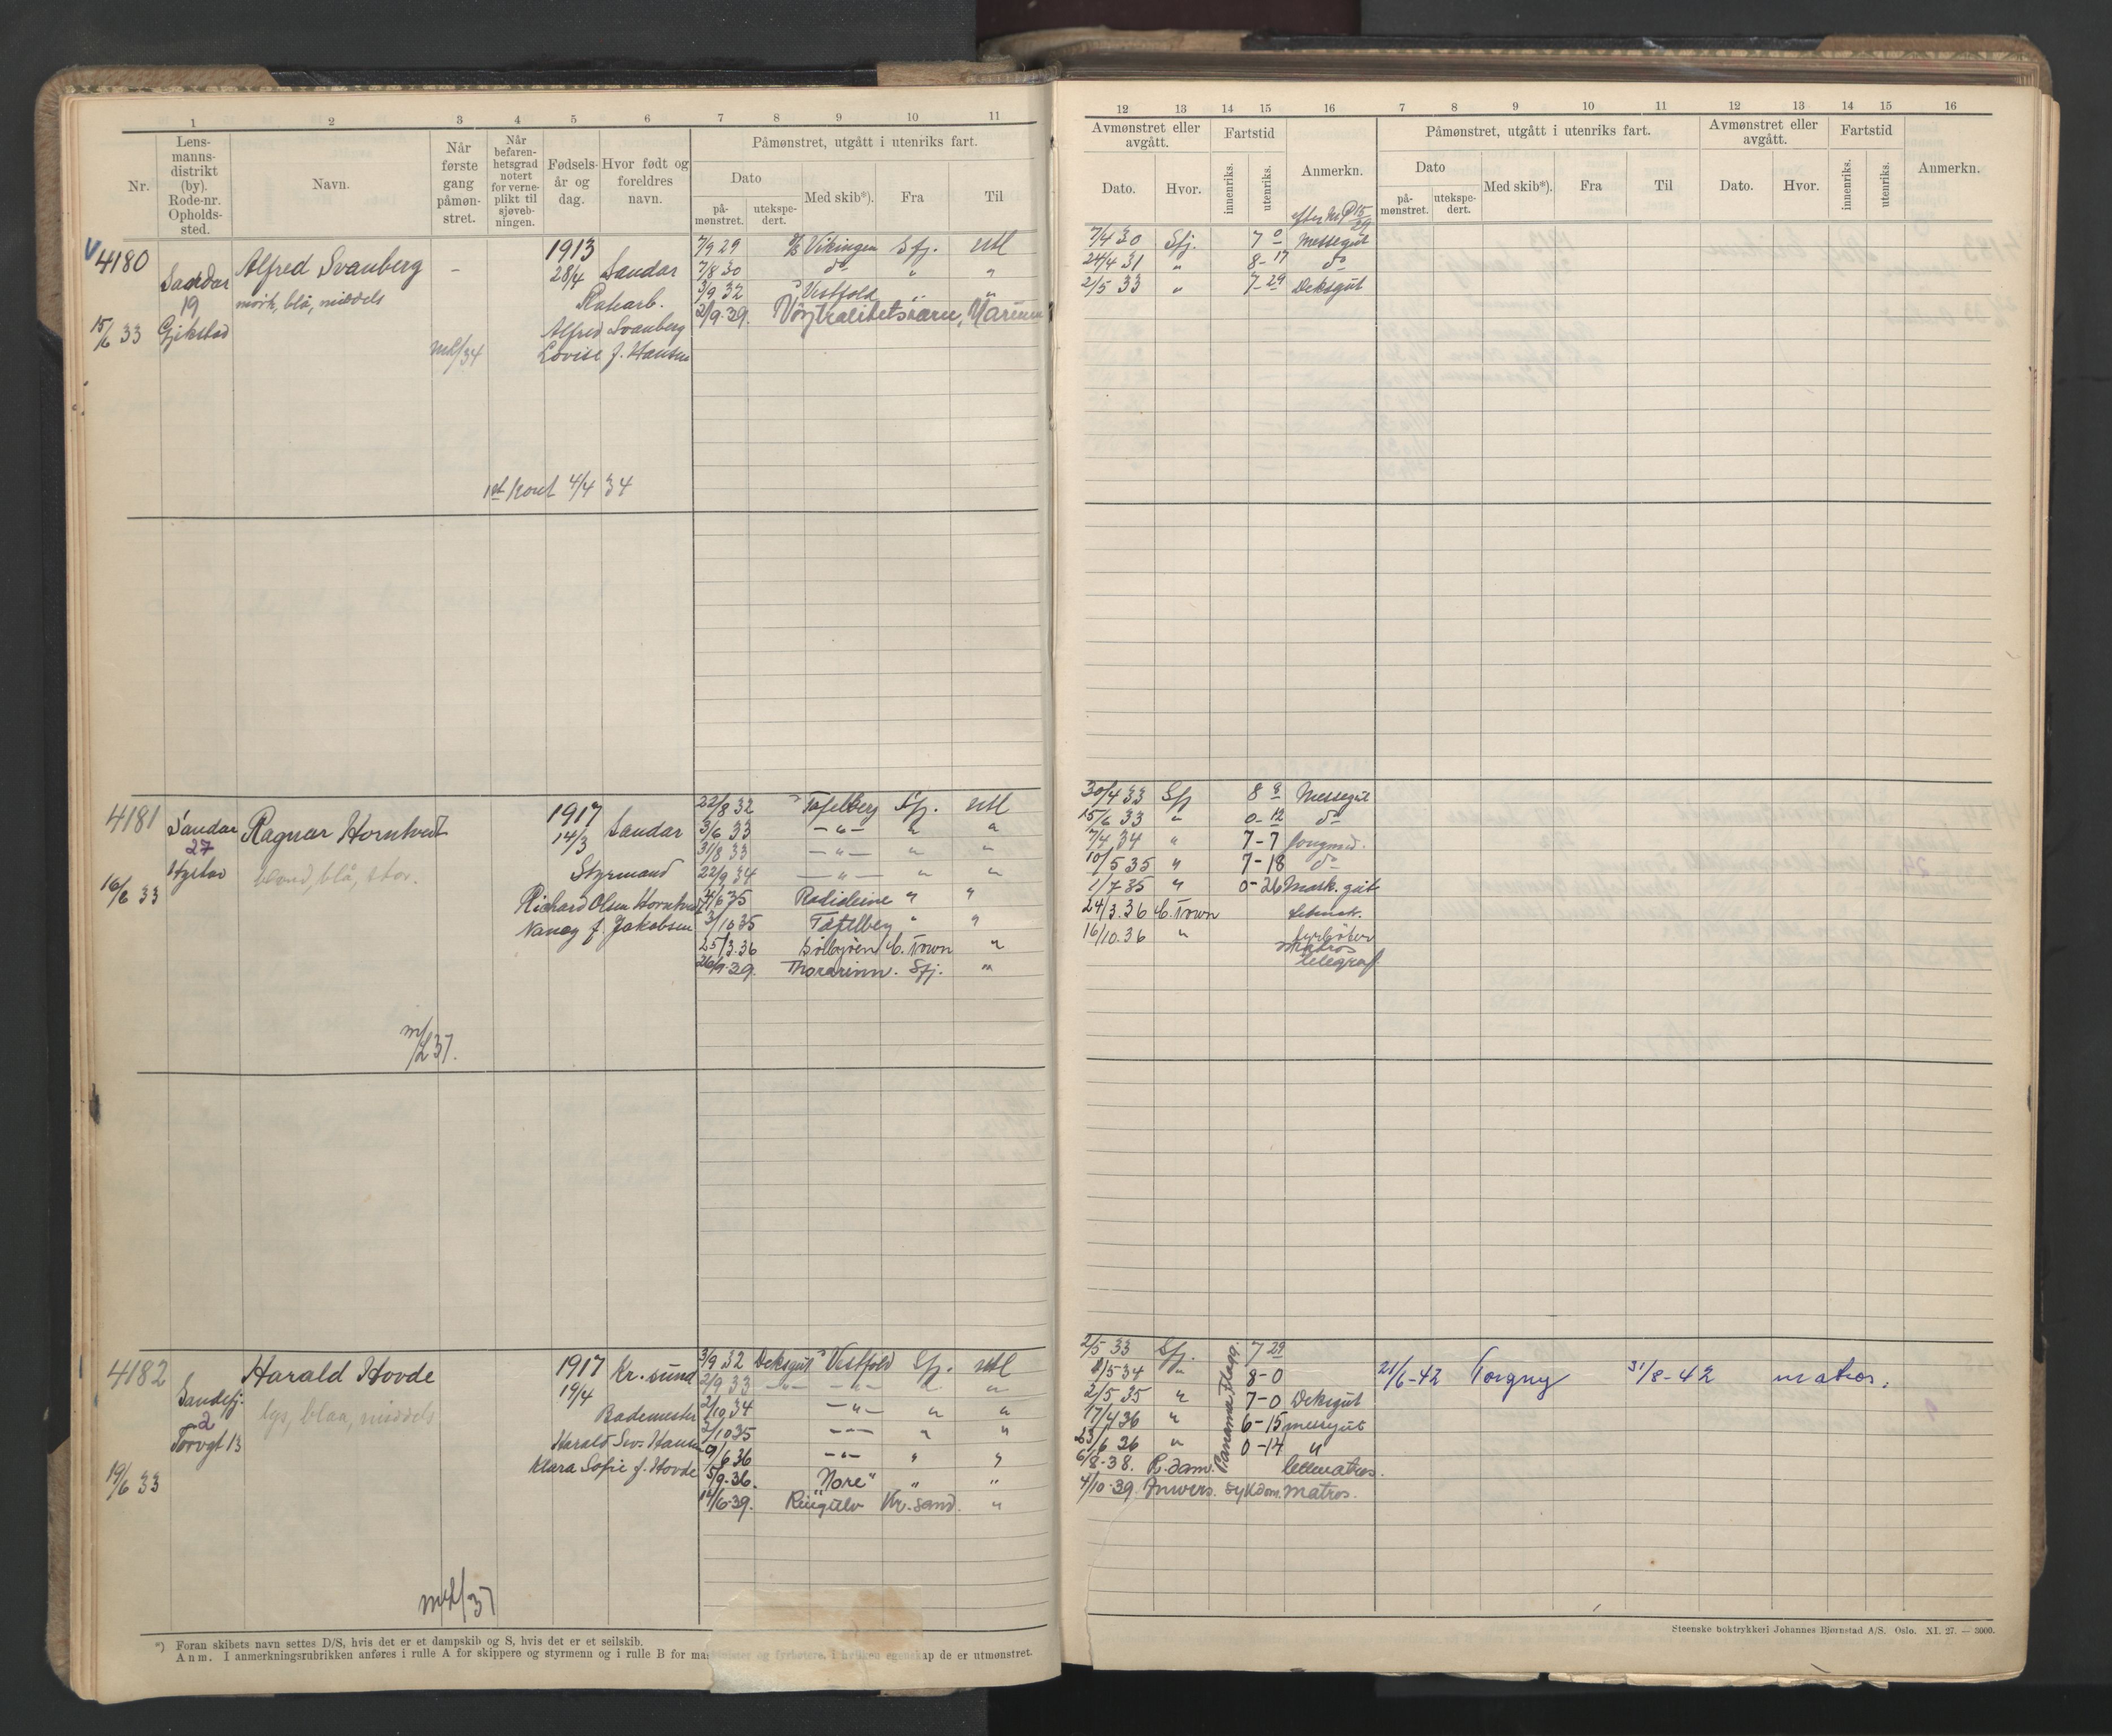 1 2 3 4 5 6 7 8 9 10 11
Nr.
Lens-
manns-
distrikt
(by).
Rode-nr.
Opholds-
sted.
Navn.
Når
første
gang
påmøn-
stret.
Når
befaren-
hetsgrad
notert
for verne-
plikt til
sjøveb-
ningen.
Fødsels-
år og
dag.
Hvor født og
foreldres
navn.
Påmønstret, utgått i utenriks fart.
Dato
på-
mønstret.
utekspe-
dert.
Med skib*).
Fra
Til
4180
Sandar
19
Gjekstad
15/6 33
Alfred Svanberg
mørk, blå, middels
–
ml/34
1913
28/4 Sandar
Alfred Svanberg
Lovise f. Hansen
1st kont 4/4 34
7/9 29 Vikingen Sfj. Utl
7/8 30 do " "
3/9 32 Vestfold " "
2/9-39. Nøytralitetsvern, Marinen
4181
Sandar
27
Hystad
16/6 33
Ragnar Horntvedt
blond, blå, stor.
m/L37.
1917
14/3 Sandar
Styrmand
Richard Olsen Horntvedt
Nancy f. Jakobsen
22/8 32 Tafelberg Sfj. Utl
3/6 33 — " — " "
31/8 33 — " — " "
22/9 34 — " — " "
4/6 35 Radioleine " "
3/10 35 Tafelberg " "
25/3.36 Sølbjøen C. Town "
26/9-39. Thorarinn. Sfj. "
4182
Sandefj.
2
Torvgt 13
19/6 33
Harald Hovde
lys, blaa, middels
ml/37
1917 Kr. sund
19/4
Bademester
Harald Sev. Hansen
Klara Sofie f. Hovde
3/9 32 Deksgut Vestfold Sfj. Utl
2/9 33 — " — — " — " "
2/10 34 — " — " "
2/10 35 — " — " "
9/6 36 — " — " "
5/9-36. "Nore" " "
12/6-39. Ringulv Kr. sand. "
*) Foran skibets navn settes D/S, hvis det er et dampskib og S, hvis det er et seilskib.
Anm. I anmerkningsrubrikken anføres i rulle A for skippere og styrmenn og i rulle B for maskinister og fyrbøtere, i hvilken egenskap de er utmønstret.
12 13 14 15 16 7 8 9 10 11 12 13 14 15 16
Avmønstret eller
avgått.
Dato.
Hvor.
Fartstid
innenriks.
utenriks.
Anmerkn.
Påmønstret, utgått i utenriks fart.
Dato
på-
mønstret.
utekspe-
dert.
Med skib*).
Fra
Til
Avmønstret eller
avgått.
Dato.
Hvor.
Fartstid
innenriks.
utenriks.
Anmerkn.
7/4 30 Sfj. 7 0 Messegut
24/4 31 " 8-17 do
2/5 33 " 7-29 Deksgut
30/4 33 Sfj 8 9 Messegut
15/6 33 " 0-12 do
7/4 34 " 7-7 Jungmd.
10/5 35 " 7-18 do
1/7 35 " 0-26 Mask. gut
24/3.36 C. Town
16/10.36 " fyrbøter
matros
telegraf.
2/5 33 Sfj. 7 29
8/5 34 " 8-0
2/5 35 " 7-0 Deksgut
17/4 36 " 6-15 messgut
23/6 36 " 0-14 "
6/8-38. R.dam. lettmatros.
4/10-39. Anvers. sykdom. matros.
Panama Flagg.
21/6-42 Torgny 31/8-42 matros.
Steenske boktrykkeri Johannes Bjørnstad A/S. Oslo. XI. 27. — 3000.